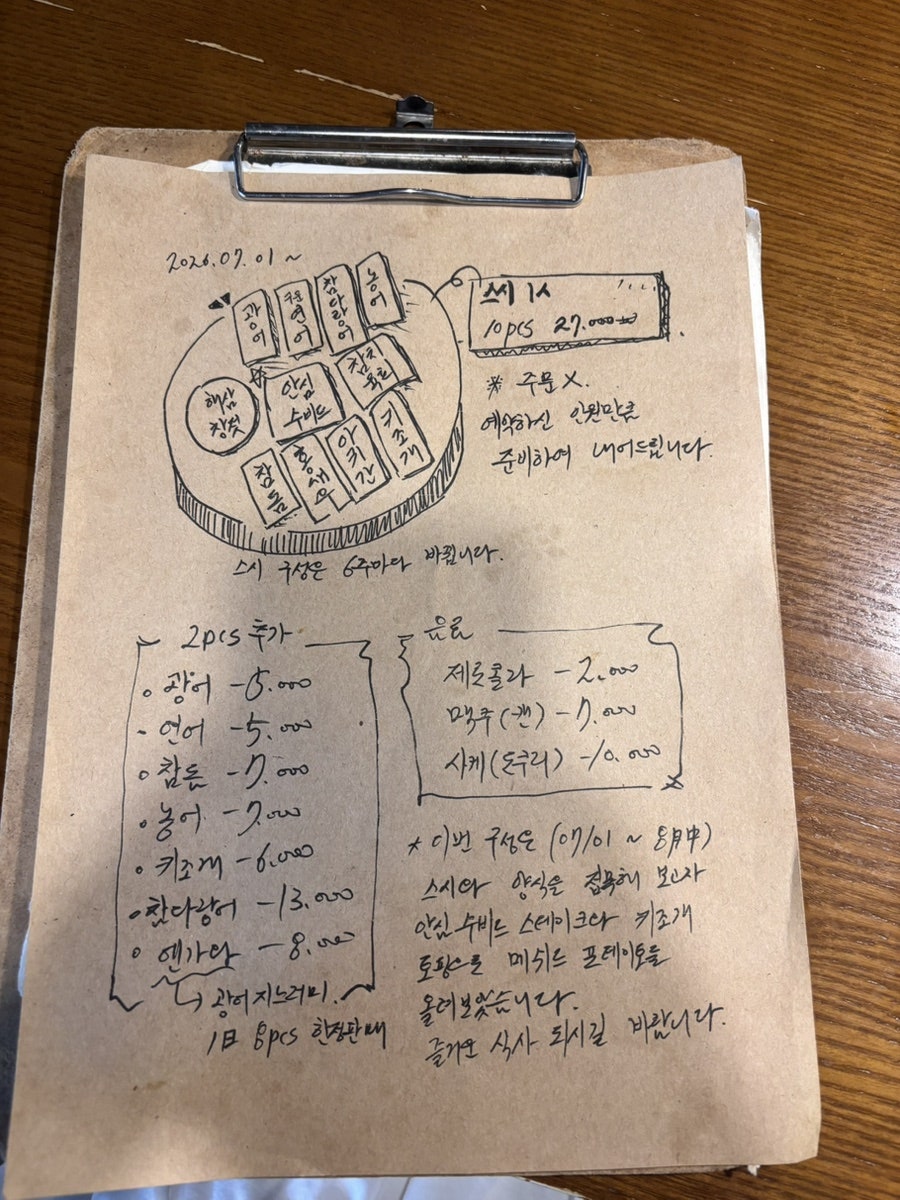 2026.07.01 ~
광어
구운 연어
참다랑어
농어
해삼 창젓
안심 수비드
참치 육회
참돔
홍새우
아귀간
키조개
스시 1人
10pcs 27.000
※ 주문 X.
예약하신 인원만큼
준비하여 내어드립니다.
스시 구성은 6주마다 바뀝니다.
2pcs 추가
• 광어 - 5.000
- 연어 - 5.000
• 참돔 - 7.000
• 농어 - 7.000
• 키조개 - 6.000
• 참다랑어 - 13.000
• 엔가와 - 8.000
↳ 광어지느러미.
1日 8pcs 한정판매
음료
제로콜라 - 2.000
맥주(캔) - 7.000
사케(도쿠리) - 10.000
* 이번 구성은 (07/01 ~ 8月中)
스시와 양식을 접목해 보고자
안심 수비드 스테이크와 키조개
토핑으로 메쉬드 포테이토를
올려보았습니다.
즐거운 식사 되시길 바랍니다.